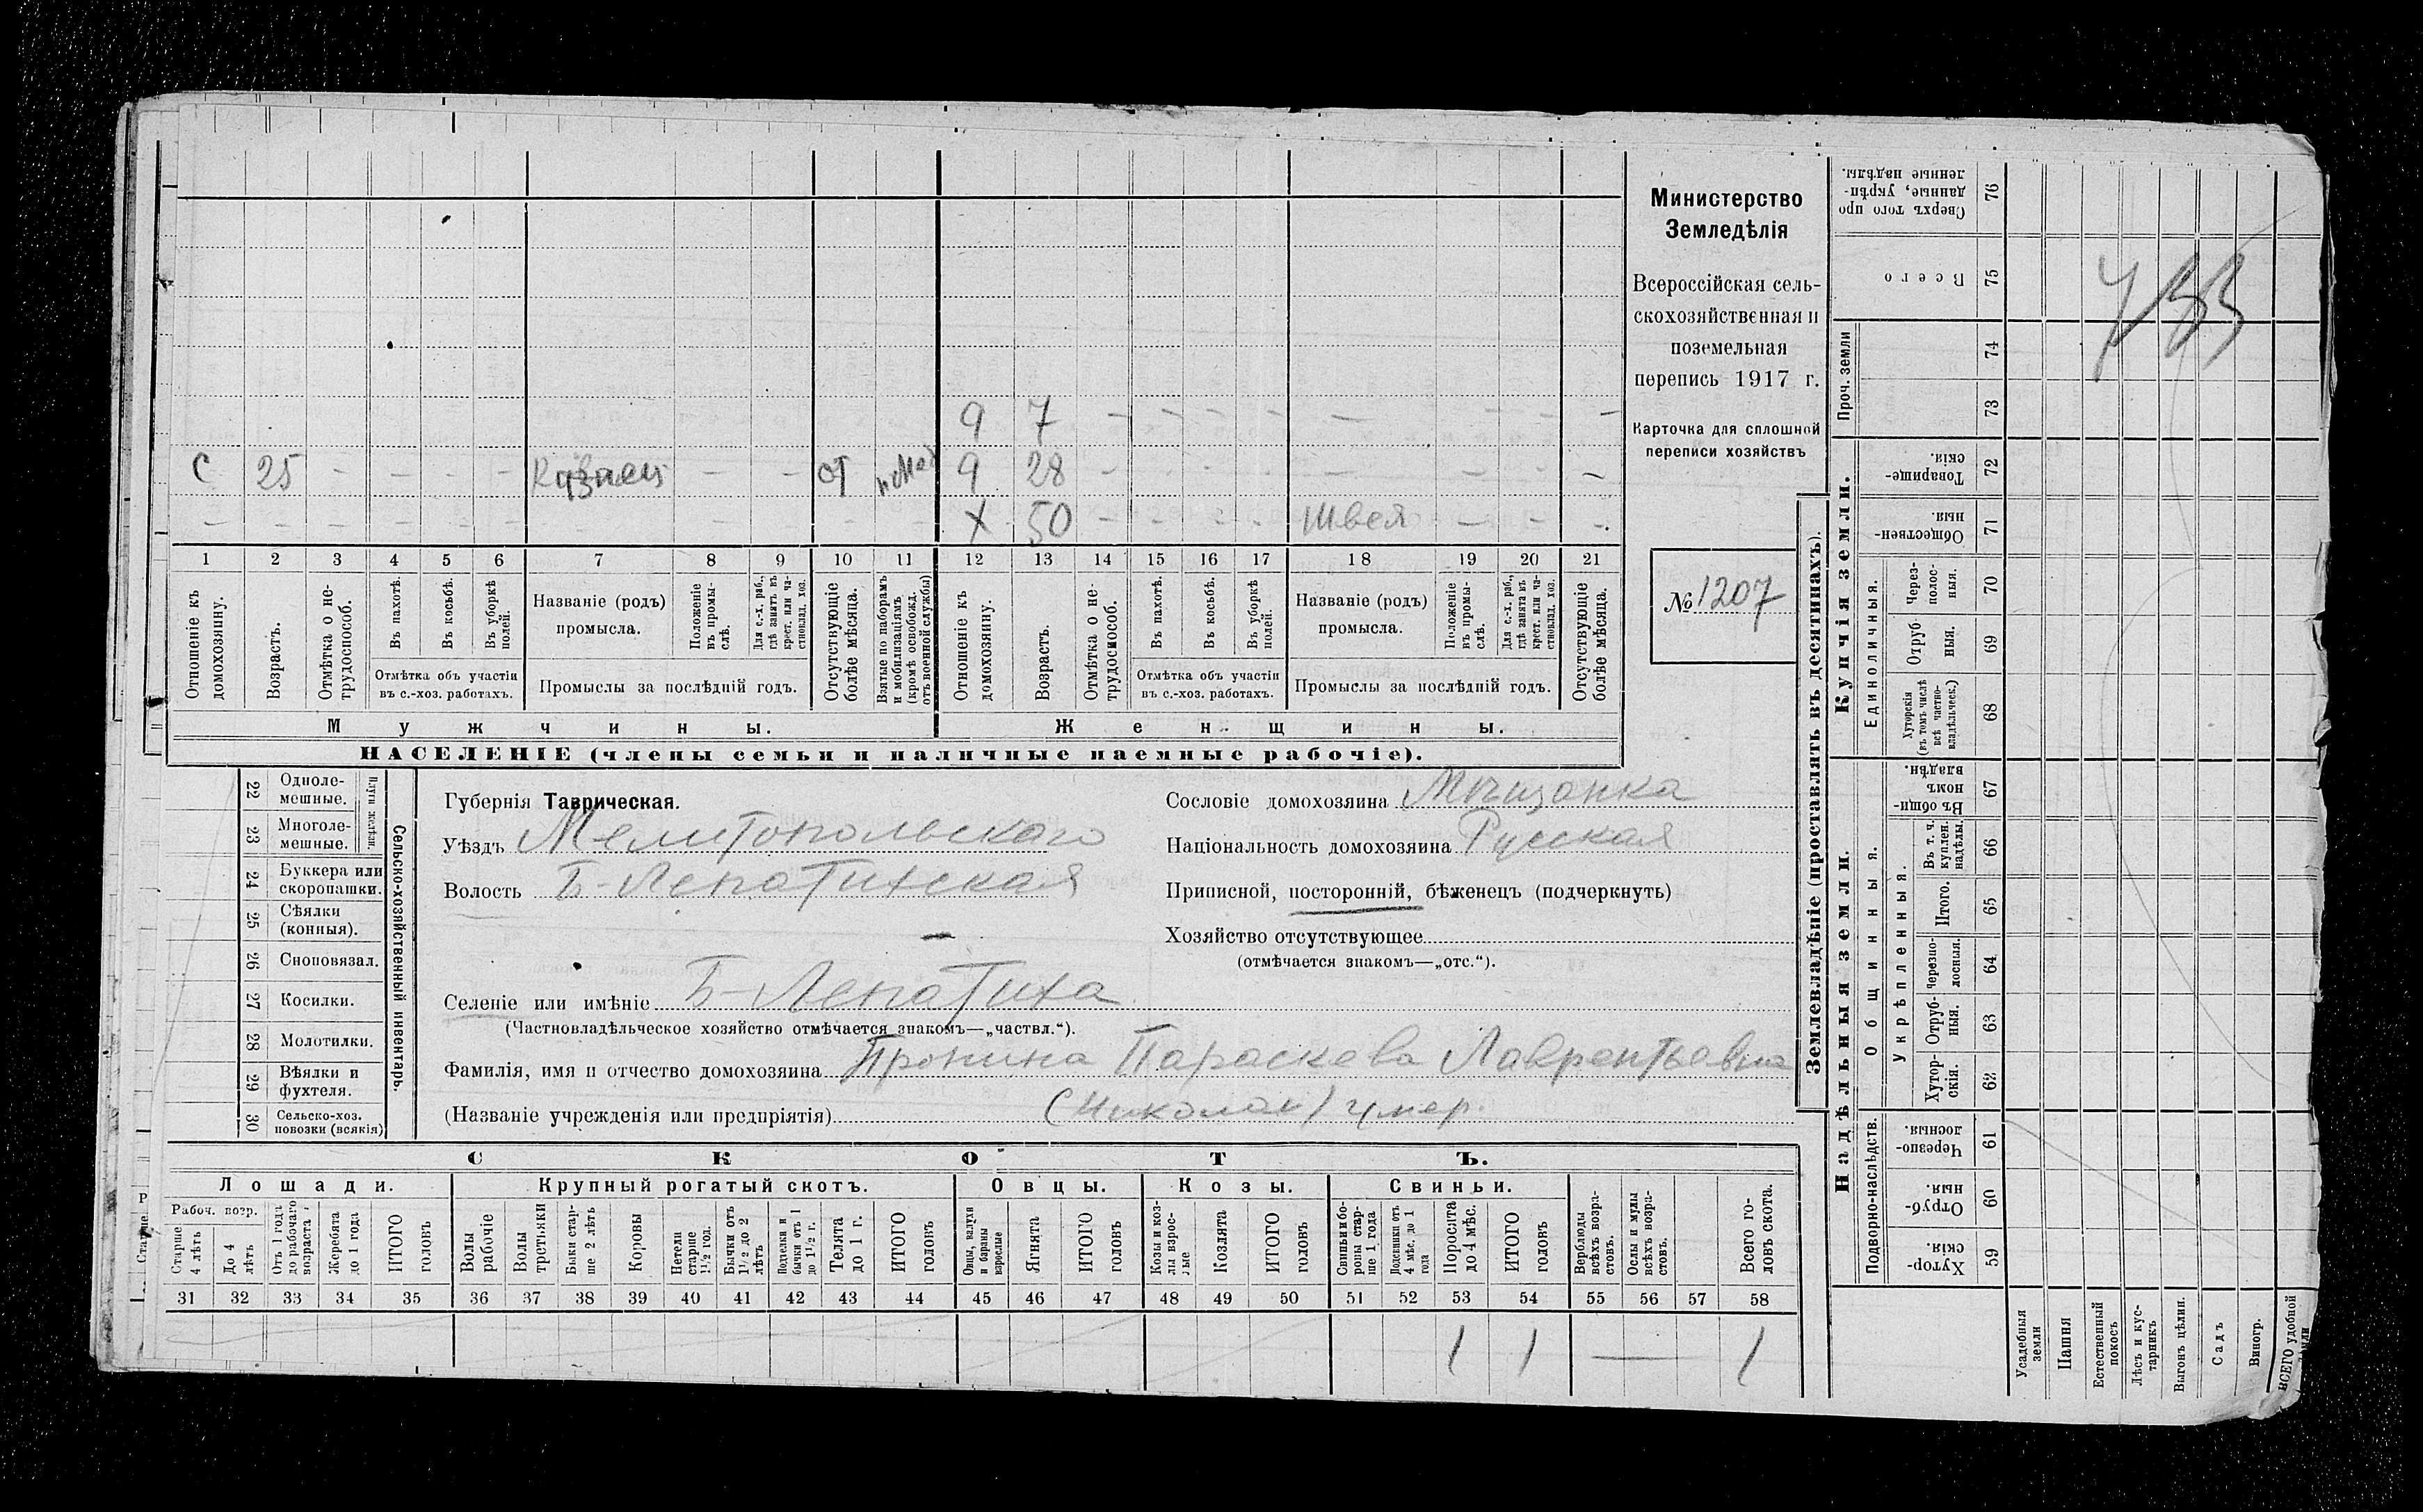 9 7 — — — — — — — —
С 25 — — — — — — от 9 28 — — — — — — — —
— — — — — — — — — — — Х 50 — — — — Швея — — —
1 2 3 4 5 6 7 8 9 10 11 12 13 14 15 16 17 18 19 20 21
Отношеніе къ домохозяину.
Возрастъ.
Отмѣтка о не-
трудоспособ.
Въ пахотѣ.
Въ косьбѣ.
Въ уборкѣ
полей.
Отмѣтка объ участіи
въ с.-хоз. работахъ.
Названіе (родъ)
промысла.
Положеніе
въ промы-
слѣ.
Для с.-х. раб.,
гдѣ занятъ въ
крест. или ча-
стновлад. хоз.
Промыслы за послѣдній годъ.
Отсутствующіе
болѣе мѣсяца.
Взятые по наборамъ
и мобилизаціямъ
(кромѣ освобожд.
отъ военной службы)
Отношеніе къ
домохозяину.
Возрастъ.
Отмѣтка о не-
трудоспособ.
Въ пахотѣ.
Въ косьбѣ.
Въ уборкѣ
полей.
Отмѣтка объ участіи
въ с.-хоз. работахъ.
Названіе (родъ)
промысла.
Положеніе
въ промы-
слѣ.
Для с.-х. раб.,
гдѣ занята въ
крест. или ча-
стновлад. хоз.
Промыслы за послѣдній годъ.
Отсутствующіе
болѣе мѣсяца.
Мужчины.
Женщины.
НАСЕЛЕНІЕ (члены семьи и наличные наемные рабочіе).
Министерство
Земледѣлія
Всероссійская сель-
скохозяйственная и
поземельная
перепись 1917 г.
Карточка для сплошной
переписи хозяйствъ
№ 1207
22 Одноле-
мешные.
23 Многоле-
мешные.
Плуги желѣзн.
24 Буккера или
скоропашки.
25 Сѣялки
(конныя).
26 Сноповязал.
27 Косилки.
28 Молотилки.
29 Вѣялки и
фухтеля.
30 Сельско-хоз.
повозки (всякія)
Сельско-хозяйственный инвентарь.
Губернія Таврическая.
Уѣздъ Мелитопольскаго
Волость Б-Лепатихская
Сословіе домохозяина Мѣщанка
Національность домохозяина Русская
Приписной, посторонній, бѣженецъ (подчеркнуть)
Хозяйство отсутствующее
(отмѣчается знакомъ—„отс.“).
Селеніе или имѣніе Б-Лепатиха
(Частновладѣльческое хозяйство отмѣчается знакомъ—„частвл.“).
Фамилія, имя и отчество домохозяина Пронина Параскева Лаврентьевна
(Названіе учрежденія или предпріятія) (Николай) умер.
СКОТЪ.
Лошади. Крупный рогатый скотъ. Овцы. Козы. Свиньи.
Рабоч. возр.
Старше
4 лѣтъ
До 4
лѣтъ
Отъ 1 года
до рабочаго
возраста
Жеребята
до 1 года
ИТОГО
головъ
Волы
рабочіе
Волы
третьяки
Быки стар-
ше 2 лѣтъ
Коровы
Нетели
старше
1½ год.
Бычки отъ
1½ до 2
лѣтъ
Подтелки и
бычки отъ 1
до 1½ г.
Телята
до 1 г.
ИТОГО
головъ
Овцы, валухи
и бараны
взрослые
Ягнята
ИТОГО
головъ
Козы и коз-
лы взрос-
лые
Козлята
ИТОГО
головъ
Свиньи и бо-
ровы стар-
ше 1 года
Подсвинки отъ
4 мѣс. до 1
года
Поросята
до 4 мѣс.
ИТОГО
головъ
Верблюды
всѣхъ возра-
стовъ.
Ослы и мулы
всѣхъ возра-
стовъ.
Всего го-
ловъ скота.
31 32 33 34 35 36 37 38 39 40 41 42 43 44 45 46 47 48 49 50 51 52 53 54 55 56 57 58
1 1 — 1
Землевладѣніе (проставлять въ десятинахъ).
Надѣльныя земли.
Купчія земли.
Проч. земли
Подворно-наслѣдств.
Общинныя.
Укрѣпленныя.
Единоличныя.
Сверхъ того про
данные, укрѣп-
ленные надѣлы.
76
Всего
75
74
73
Товарище-
скія.
72
Обществен-
ныя.
71
Через-
полос-
ныя.
70
Отруб
ныя.
69
Хуторскія
(въ томъ числѣ
всѣ частно-
владѣльческ.)
68
Въ общи-
номъ
владѣн.
67
Въ т. ч.
куплен.
надѣлы.
66
Итого.
65
Черезпо-
лосныя.
64
Отруб-
ныя.
63
Хутор-
скія.
62
Черезпо-
лосныя.
61
Отруб-
ныя.
60
Хутор-
скія.
59
Усадебныя
земли
Пашня
Естественный
покосъ
Лѣсъ и кус-
тарникъ
Выгонъ цѣлин.
Садъ
Виногр.
ВСЕГО удобной